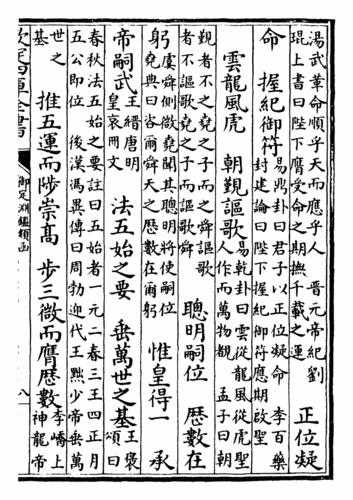 湯武革命順乎天而應乎人 晉元帝紀劉
琨上書曰陛下膺受命之期撫千載之運
正位凝
命 握紀御符
易鼎卦曰君子以正位凝命 李百藥
封建論曰陛下握紀御符應期啟聖
雲龍風虎 朝覲謳歌
易乾卦曰雲從龍風從虎聖
人作而萬物覩 孟子曰朝
覲者不之堯之子而之舜謳歌
者不謳歌堯之子而謳歌舜
聰明嗣位 歷數在
躬
虞舜側微堯聞其聰明將使嗣位
堯典曰咨爾舜天之歷數在爾躬
惟皇得一 承
帝嗣武
王縉唐明
皇哀冊文
法五始之要 垂萬世之基
王褒
頌曰
春秋法五始之要註曰五始者一元二春三王四正月
五公即位 後漢馮異傳曰周勃迎代王黜少帝垂萬
世之
基
推五運而陟崇高 步三微而膺歷數
李嶠上
神龍帝
欽定四庫全書
御定淵鑑類函
八